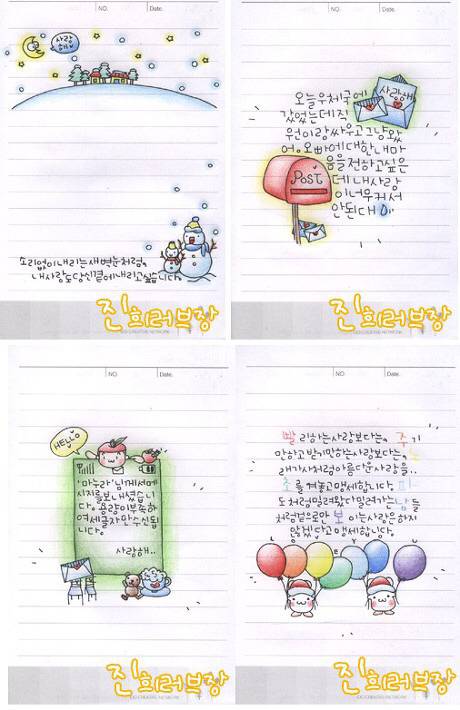 NO.
Date.
사랑
해
소리없이 내리는 새벽눈처럼,
내사랑도 당신곁에 내리고싶습니다.
진희러브장
NO.
Date.
사랑해
오늘우체국에
갔었는데직
원이랑싸우고그냥왔
어. 오빠에대한내마
음을전하고싶은
데 내사랑
이너무커서
안된대
POST
진희러브장
NO.
Date.
HELLO
'마누라'님께선메
시지를보내셨습니
다. 용량이부족하
여세글자만수신됩
니다.
사랑해..
진희러브장
NO.
Date.
빨리하는사랑보다는, 주기
안하고받기만하는사랑보다는, 노
래가사처럼아름다운사랑을..
초를켜놓고맹세합니다. 파
도처럼밀려왔다밀려가는남들
처럼겉으로만보이는사랑은하지
않겠다고맹세합니다.
진희러브장